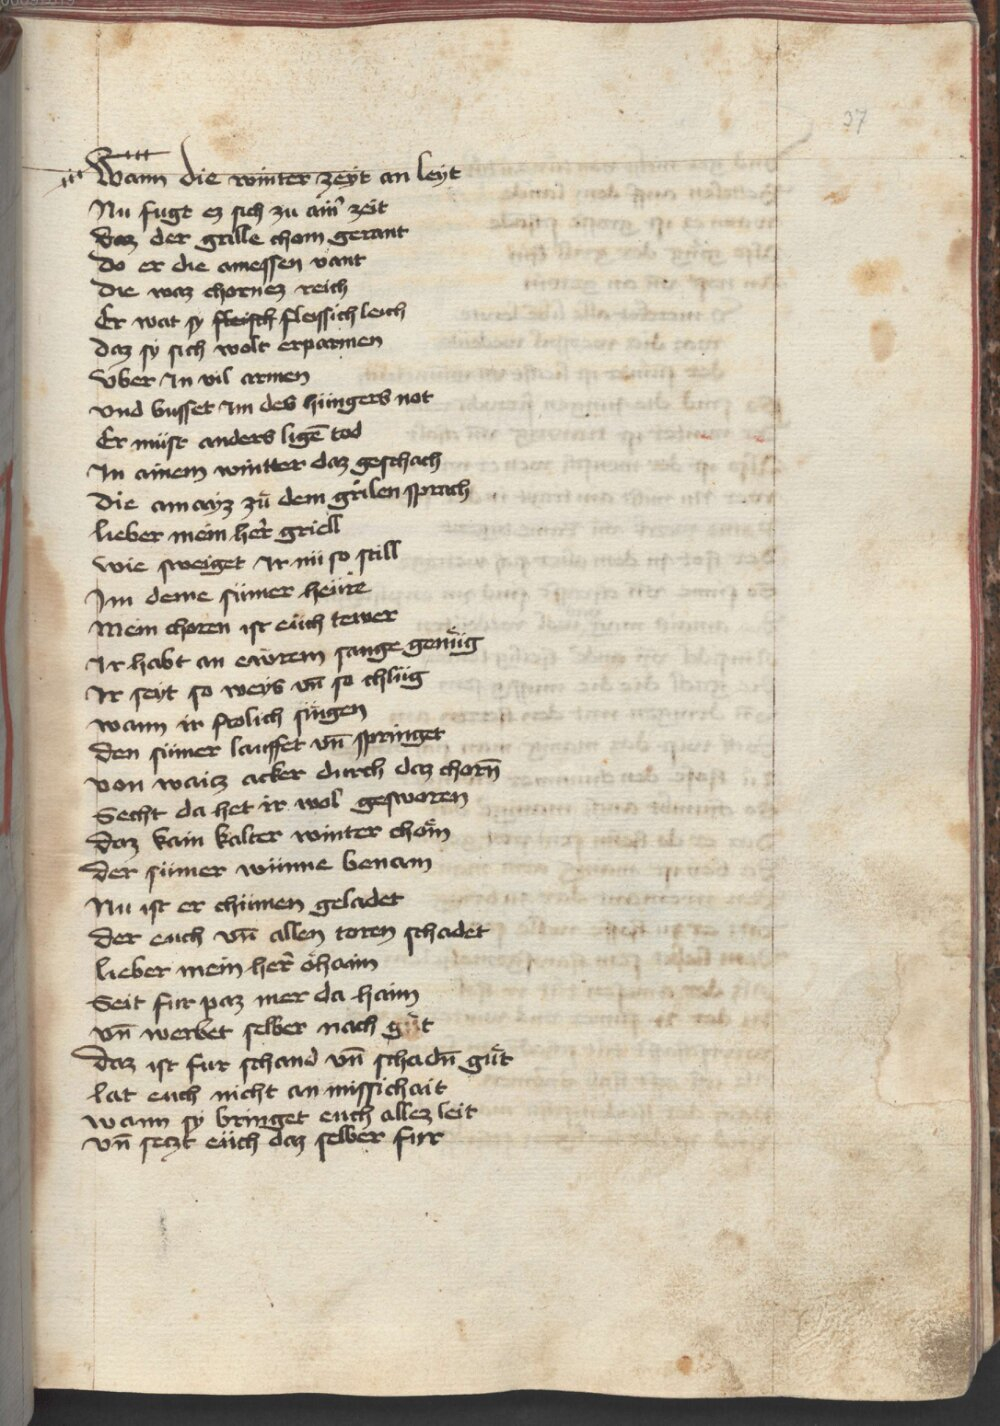 37
Wann die winter zeyt an leyt
Nu fugt ez sich zu ainr zeit
Daz der grille chom gerant
Do er die amessen vant
Die waz chornez reich
Er wat sy fleisch fleissichleich
Daz sy sich wolt erparmen
Vber In vil armen
Vnd busset Im des hungers not
Er müst anders ligē tod
In ainem wintter daz geschach
Die amayz zü dem grilen sprach
Lieber mein her griell
Wie sweiget Ir nü so still
Im deme sümer heüre
Mein choren ist eüch tewer
Ir habt an ewrem sange genüg
Ir seyt so weys vn̄ so chlüg
Wann ir frolich singen
Den sümer lauffet vn̄ springet
Von waicz acker durch daz chorn̄
Secht da het ir wol gesworen
Daz kain kalter winter chöm
Der sümer wünne benam
Nu ist er chümen geladet
Der euch vn̄ allen toren schadet
Lieber mein her öhaim
Seit fur paz mer da haim
Vn̄ werbet selber nach güt
Daz ist fur schand vn̄ schadn̄ güt
Lat euch nicht an missichait
Wann sy bringet euch allez leit
Vn̄ seczt eüch daz selber fur